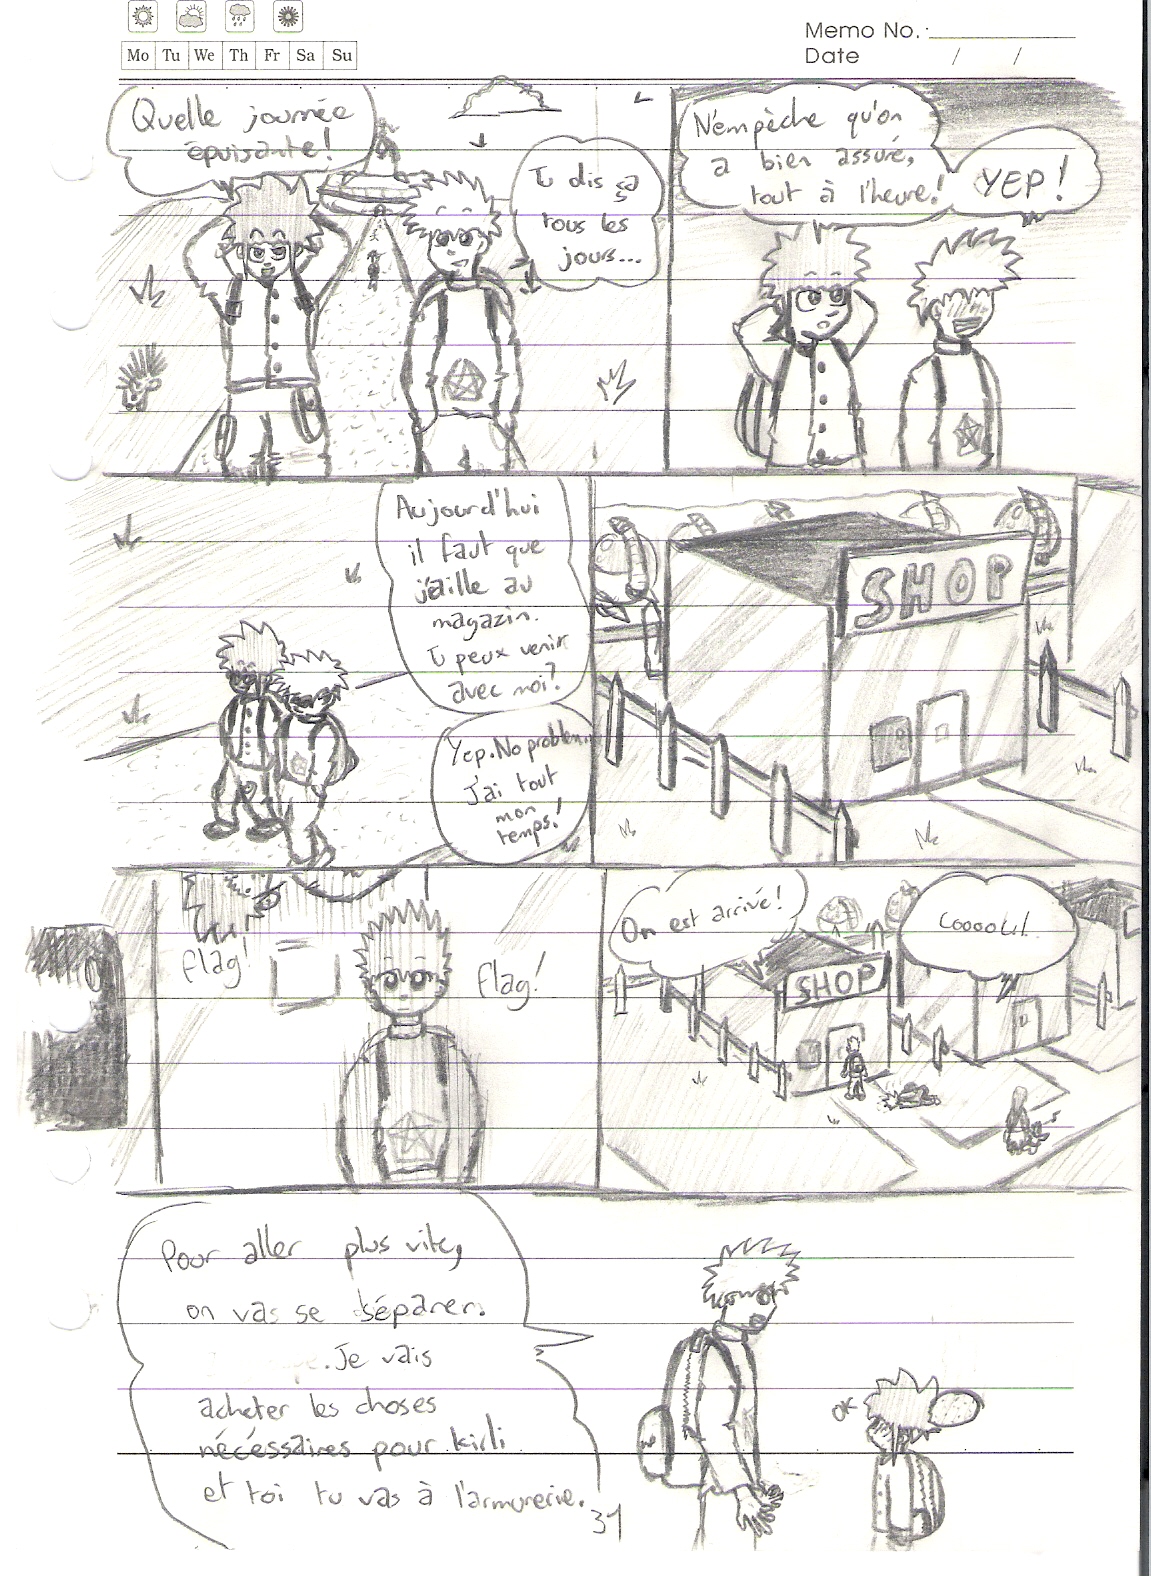 Memo No.
Date / /
Mo Tu We Th Fr Sa Su
Quelle journée
épuisante!
Tu dis ça
tous les
jours...
N'empèche qu'on
a bien assuré,
tout à l'heure!
YEP!
Aujourd'hui
il faut que
j'aille au
magazin.
Tu peux venir
avec moi?
Yep. No problem
J'ai tout
mon
temps!
SHOP
flag!
flag!
On est arrivé!
SHOP
Pour aller plus vite,
on vas se séparer.
Je vais
acheter les choses
nécéssaires pour kirli
et toi tu vas à l'armurerie.
OK
31